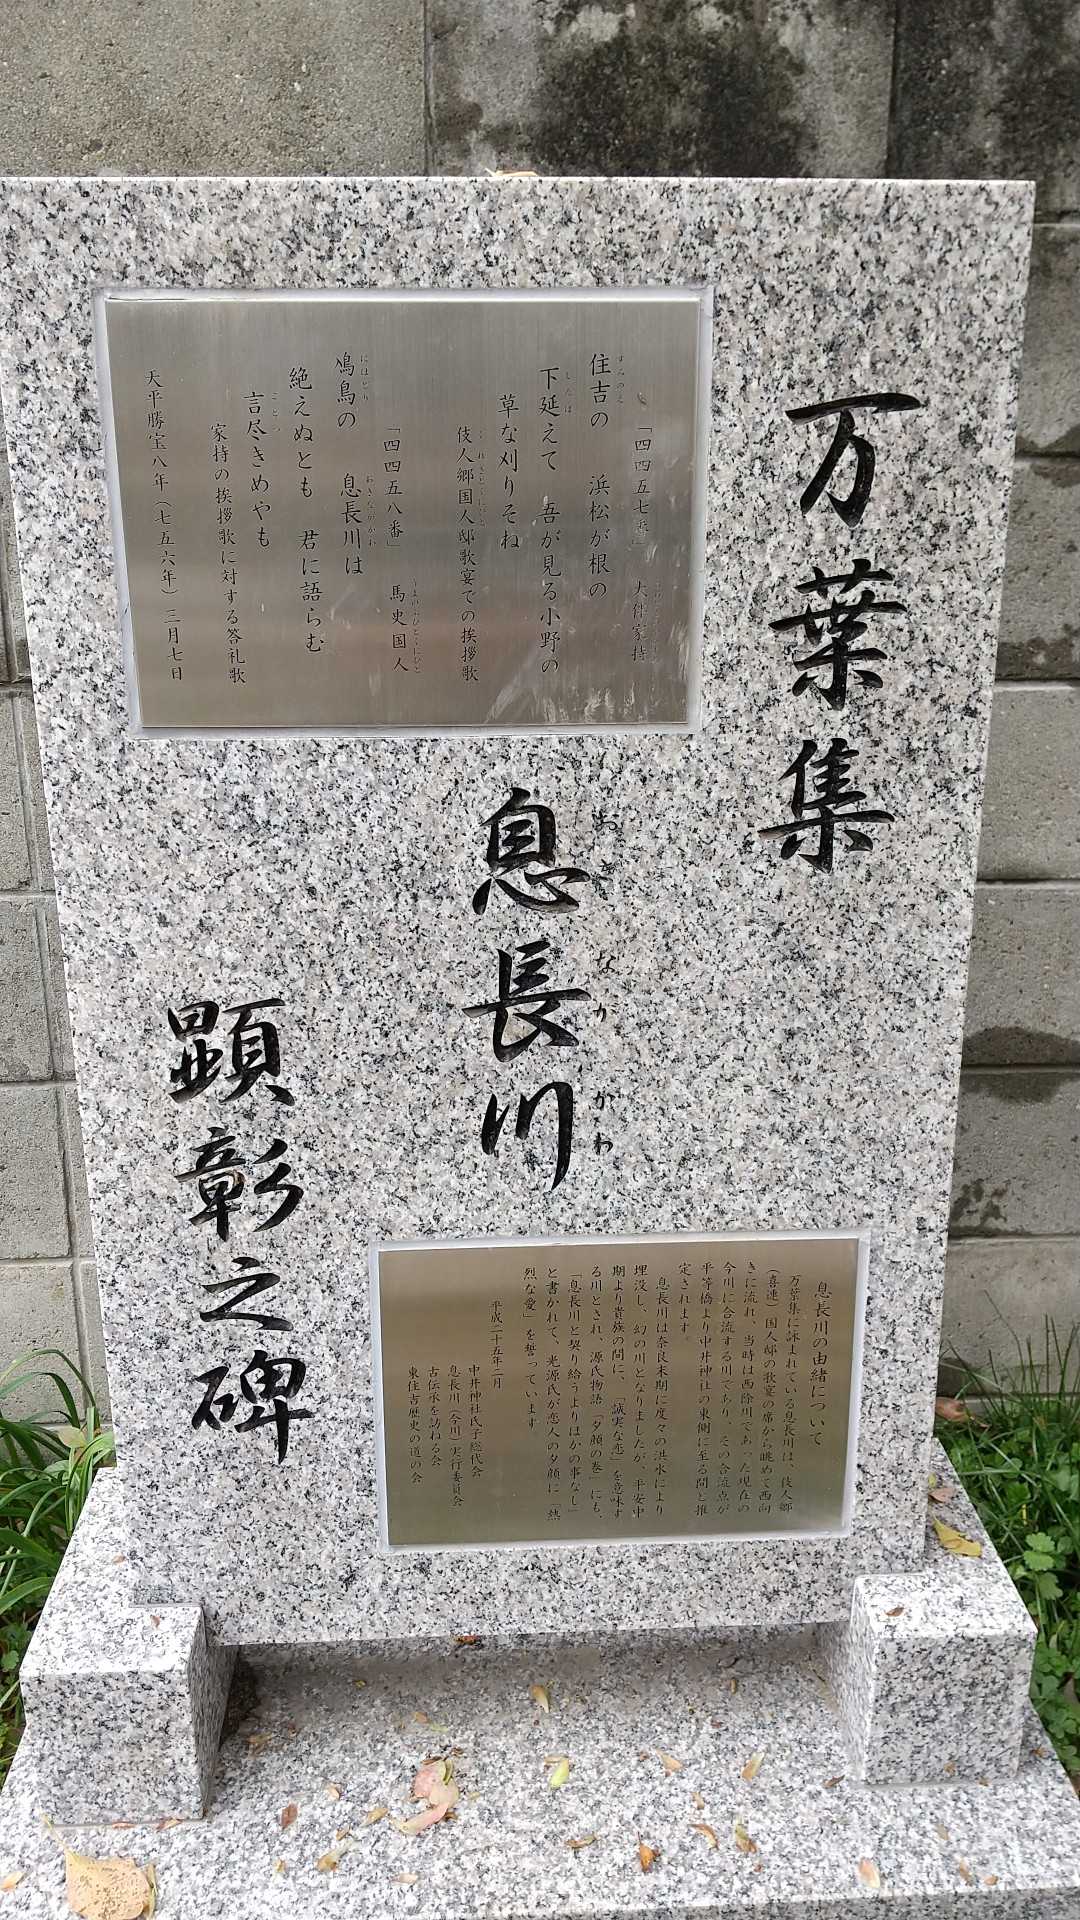 万葉集
息長川
おきながかわ
顕彰之碑
「四四五七番」 大伴家持
住吉の 浜松が根の
すみのえ
下延えて 吾が見る小野の
したは
草な刈りそね
伎人郷国人邸歌宴での挨拶歌
「四四五八番」 馬史国人
うまのふひとくにひと
鳰鳥の 息長川は
にほどり おきながかわ
絶えぬとも 君に語らむ
言尽きめやも
ことつ
家持の挨拶歌に対する答礼歌
天平勝宝八年(七五六年)三月七日
息長川の由緒について
万葉集に詠まれている息長川は、伎人郷
(喜連)国人邸の歌宴の席から眺めて西向
きに流れ、当時は西除川であった現在の
今川に合流する川であり、その合流点が
平等橋より中井神社の東側に至る間と推
定されます。
息長川は奈良末期に度々の洪水により
埋没し、幻の川となりましたが、平安中
期より貴族の間に、「誠実な恋」を意味す
る川とされ、源氏物語「夕顔の巻」にも、
「息長川と契り給うよりほかの事なし」
と書かれて、光源氏が恋人の夕顔に「熱
烈な愛」を誓っています
平成二十五年二月
中井神社氏子総代会
息長川(今川)実行委員会
古伝承を訪ねる会
東住吉歴史の道の会